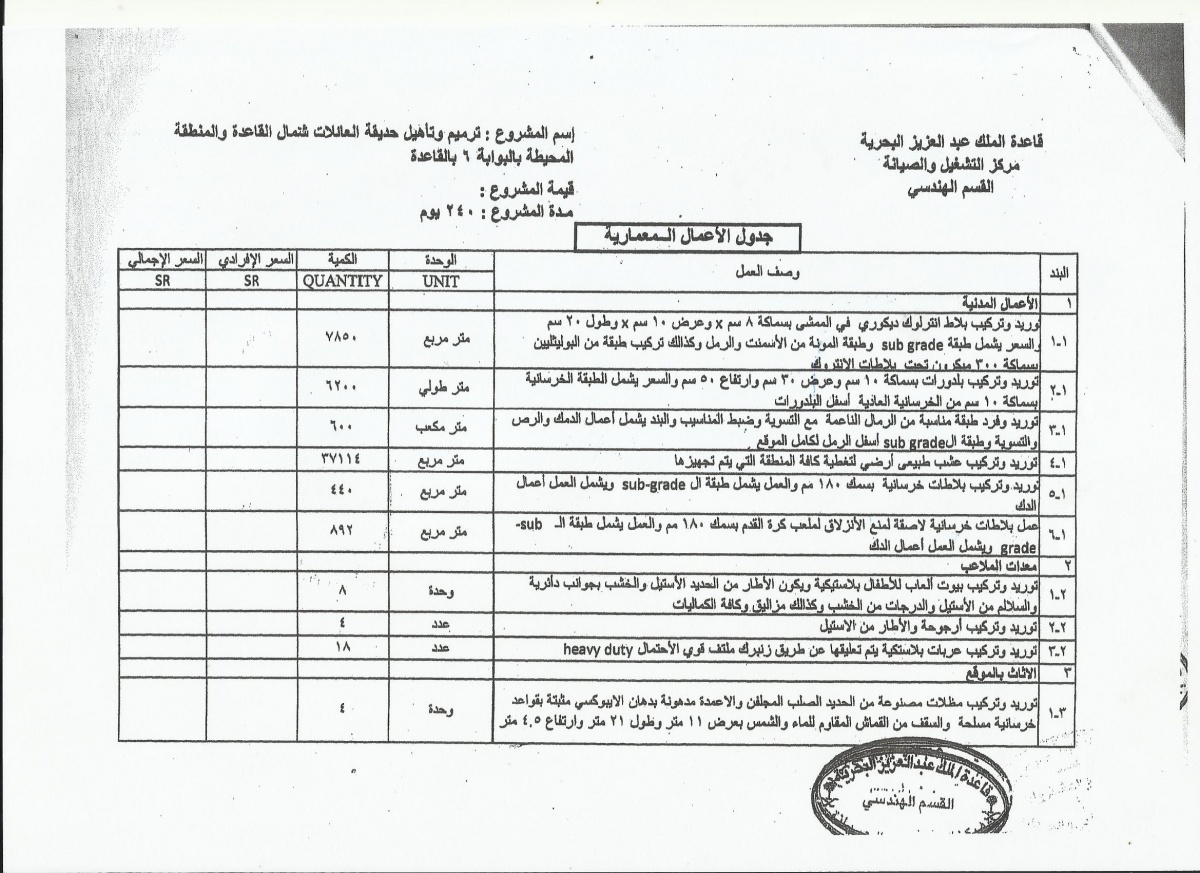 قاعدة الملك عبد العزيز البحرية
مركز التشغيل والصيانة
القسم الهندسي
إسم المشروع : ترميم وتأهيل حديقة العائلات شمال القاعدة والمنطقة
المحيطة بالبوابة ٦ بالقاعدة
قيمة المشروع :
مدة المشروع : ٢٤٠ يوم
جدول الأعمال الـمعمارية
البند وصف العمل الوحدة الكمية السعر الإفرادي السعر الإجمالي
UNIT QUANTITY SR SR
١ الأعمال المدنية
توريد وتركيب بلاط انترلوك ديكوري في الممشى بسماكة ٨ سم x وعرض ١٠ سم x وطول ٢٠ سم
١-١ والسعر يشمل طبقة sub grade وطبقة المونة من الأسمنت والرمل وكذالك تركيب طبقة من البوليثليين متر مربع ٧٨٥٠
بسماكة ٣٠٠ ميكرون تحت بلاطات الانتروك
١-٢ توريد وتركيب بلدورات بسماكة ١٠ سم وعرض ٣٠ سم وارتفاع ٥٠ سم والسعر يشمل الطبقة الخرسانية متر طولي ٦٢٠٠
بسماكة ١٠ سم من الخرسانية العادية أسفل البلدورات
١-٣ توريد وفرد طبقة مناسبة من الرمال الناعمة مع التسوية وضبط المناسيب والبند يشمل أعمال الدمك والرص متر مكعب ٦٠٠
والتسوية وطبقة الsub grade أسفل الرمل لكامل الموقع
١-٤ توريد وتركيب عشب طبيعى أرضي لتغطية كافة المنطقة التي يتم تجهيزها متر مربع ٣٧١١٤
١-٥ توريد وتركيب بلاطات خرسانية بسمك ١٨٠ مم والعمل يشمل طبقة ال sub-grade ويشمل العمل أعمال متر مربع ٤٤٠
الدك
١-٦ عمل بلاطات خرسانية لاصقة لمنع الأنزلاق لملعب كرة القدم بسمك ١٨٠ مم والعمل يشمل طبقة الـ sub- متر مربع ٨٩٢
grade ويشمل العمل أعمال الدك
٢ معدات الملاعب
٢-١ توريد وتركيب بيوت ألعاب للأطفال بلاستيكية ويكون الأطار من الحديد الأستيل والخشب بجوانب دائرية وحدة ٨
والسلالم من الأستيل والدرجات من الخشب وكذالك مزاليق وكافة الكماليات
٢-٢ توريد وتركيب أرجوحة والأطار من الاستيل عدد ٤
٢-٣ توريد وتركيب عربات بلاستكية يتم تعليقها عن طريق زنبرك ملتف قوي الأحتمال heavy duty عدد ١٨
٣ الاثاث بالموقع
٣-١ توريد وتركيب مظلات مصنوعة من الحديد الصلب المجلفن والاعمدة مدهونة بدهان الايبوكسي مثبتة بقواعد وحدة ٤
خرسانية مسلحة والسقف من القماش المقاوم للماء والشمس بعرض ١١ متر وطول ٢١ متر وارتفاع ٤.٥ متر
قاعدة الملك عبدالعزيز البحرية
القسم الهندسي